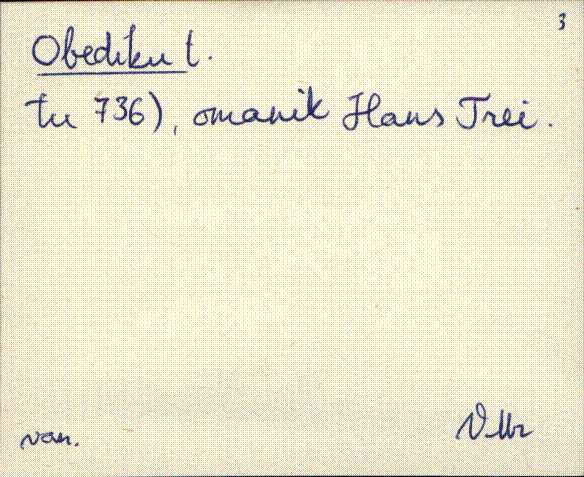 3
Obediku t.
tu 736), omanik Hans Trei.
van.